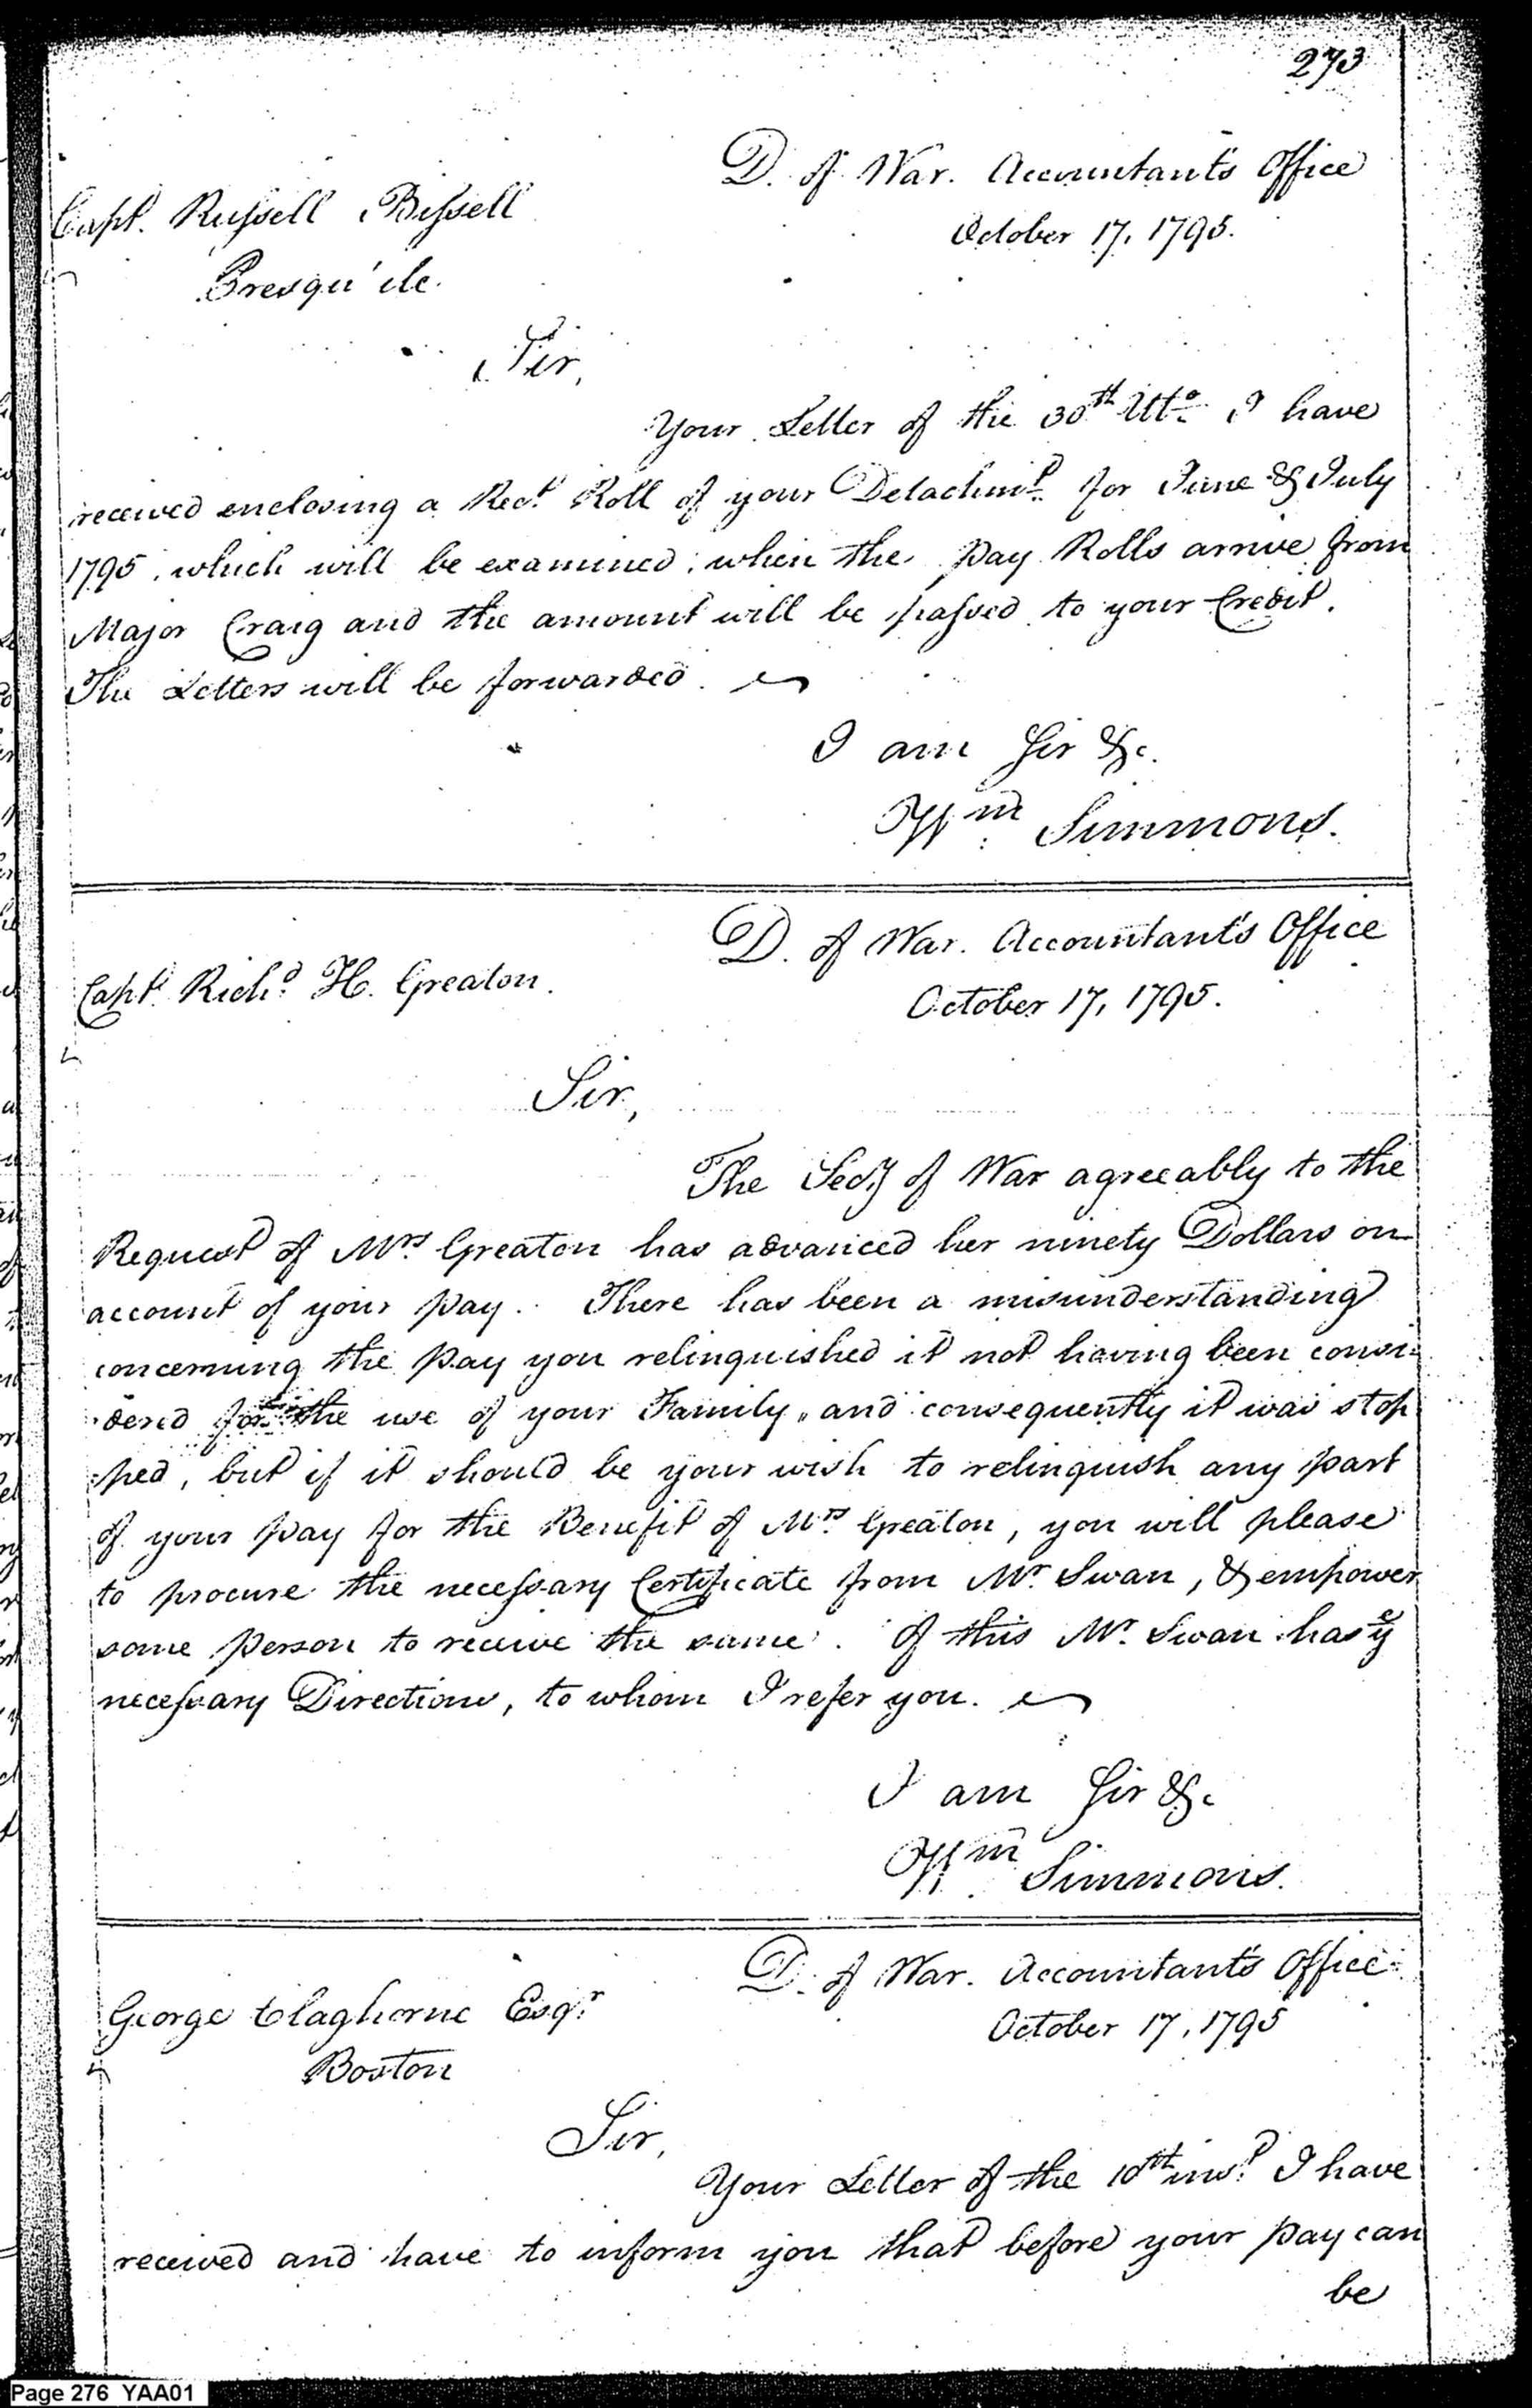 273
D. of War. Accountant's Office
Capt. Russell Bissell
October 17, 1795.
Presqu'ile.
Sir,
Your Letter of the 30th Ulto. I have
received enclosing a Rect. Roll of your Detachmt. for June & July
1795, which will be examined, when the pay Rolls arrive from
Major Craig and the amount will be passed to your Credit.
The Letters will be forwarded.
I am Sir &c.
Wm. Simmons.
D. of War. Accountant's Office
Capt. Richd. H. Greaton.
October 17, 1795.
Sir,
The Secy. of War agreeably to the
Request of Mrs Greaton has advanced her ninety Dollars on
account of your pay. There has been a misunderstanding
concerning the pay you relinquished it not having been consi-
dered for the use of your Family, and consequently it was stop
ped, but if it should be your wish to relinquish any part
of your pay for the Benefit of Mrs. Greaton, you will please
to procure the necessary Certificate from Mr. Swan, & empower
some person to receive the same. Of this Mr. Swan has ye
necessary Directions, to whom I refer you.
I am Sir &c
Wm. Simmons.
D. of War. Accountant's Office
George Claghorne Esqr.
October 17, 1795
Boston
Sir,
Your Letter of the 10th inst. I have
received and have to inform you that before your pay can
be
Page 276 YAA01